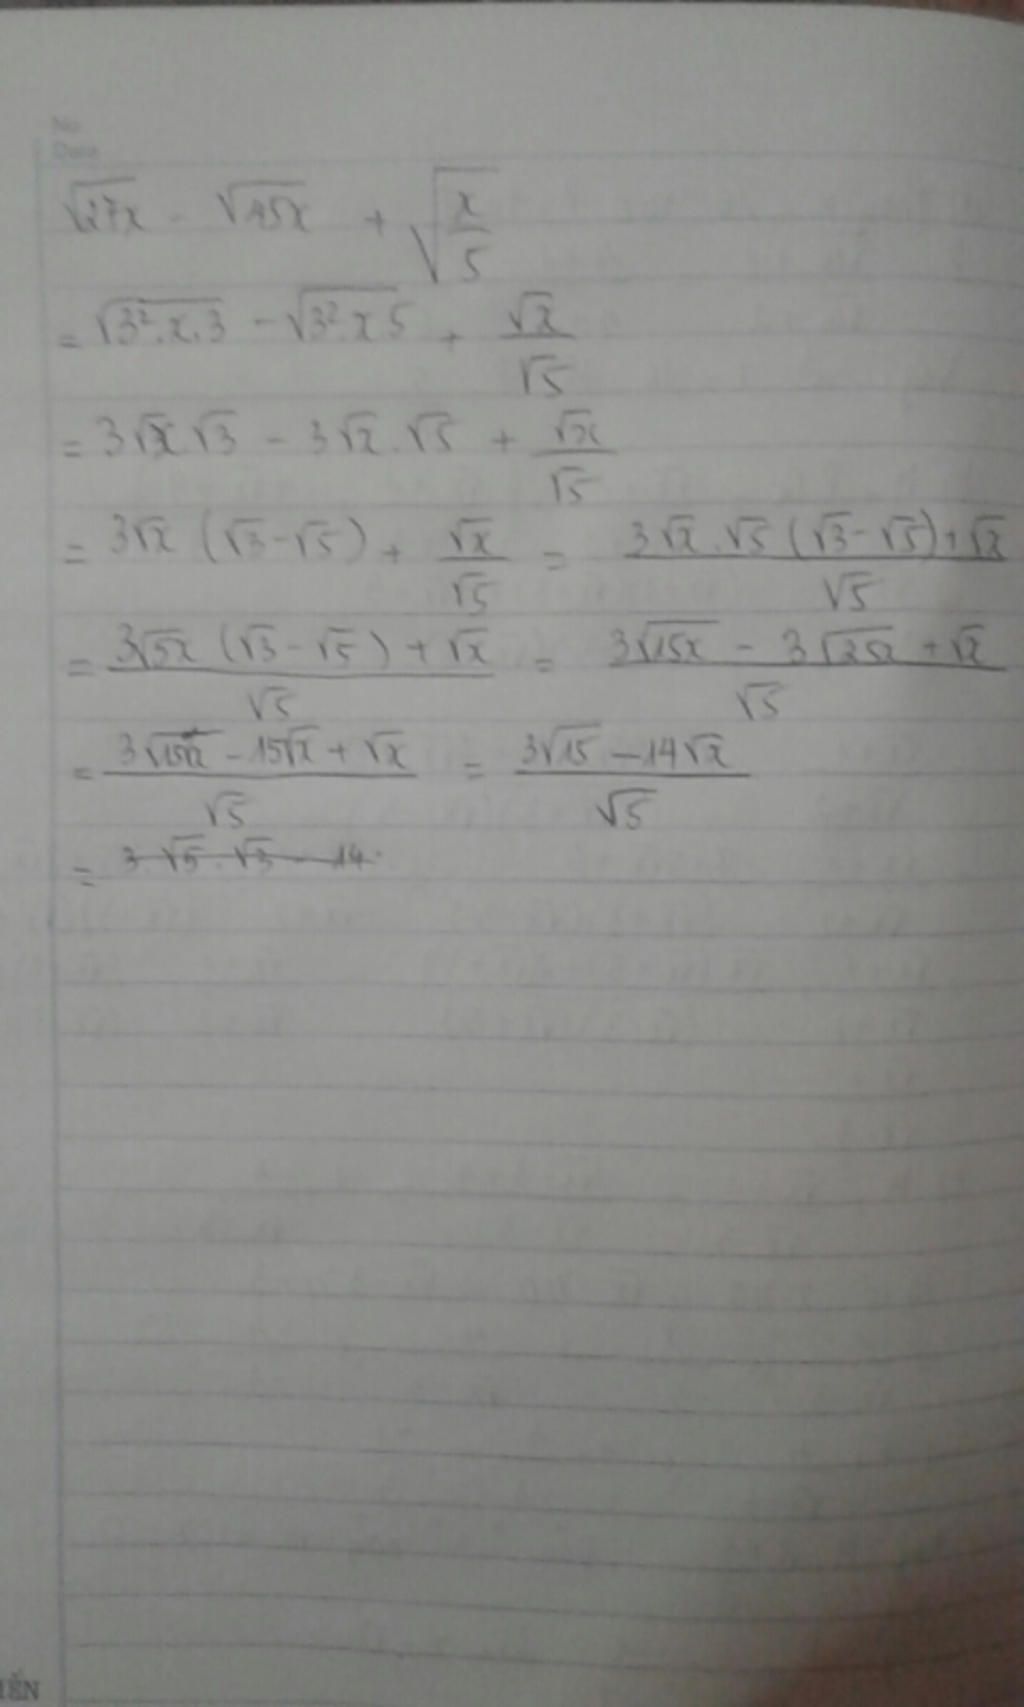 No
Date
√27x - √45x + √(x/5)
= √(3².x.3) - √(3².x5) + √x/√5
= 3√x.√3 - 3√x.√5 + √x/√5
= 3√x (√3-√5) + √x/√5 = (3√x.√5 (√3-√5)+√x)/√5
= (3√5x (√3-√5) + √x)/√5 = (3√15x - 3√25x + √x)/√5
= (3√15x - 15√x + √x)/√5 = (3√15 - 14√x)/√5
= 3.√5.√3 - 14.